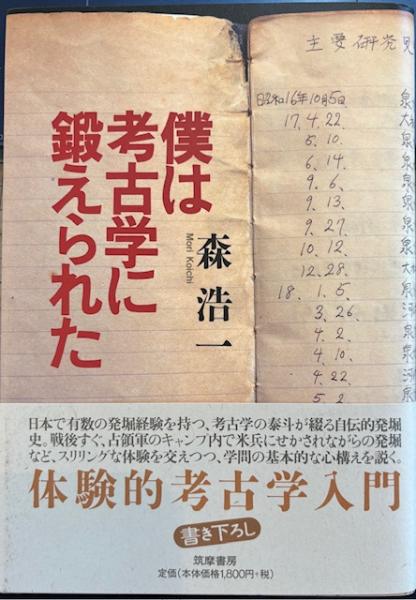 僕は
考古学に
鍛えられた
森浩一
Mori Koichi
主要研究
昭和16年10月5日 泉
17.4.22. 大
5.10. 泉
6.14. 泉
9.6. 泉
9.13. 泉
9.27. 泉
10.12. 泉
12.28. 大
18.1.5. 泉
3.26. 河
4.2. 泉
4.10. 泉
4.22 河
5.2 泉
日本で有数の発堀経験を持つ、考古学の泰斗が綴る自伝的発堀
史。戦後すぐ、占領軍のキャンプ内で米兵にせかされながらの発堀
など、スリリングな体験を交えつつ、学問の基本的な心構えを説く。
体験的考古学入門
書き下ろし
筑摩書房
定価(本体価格1,800円+税)